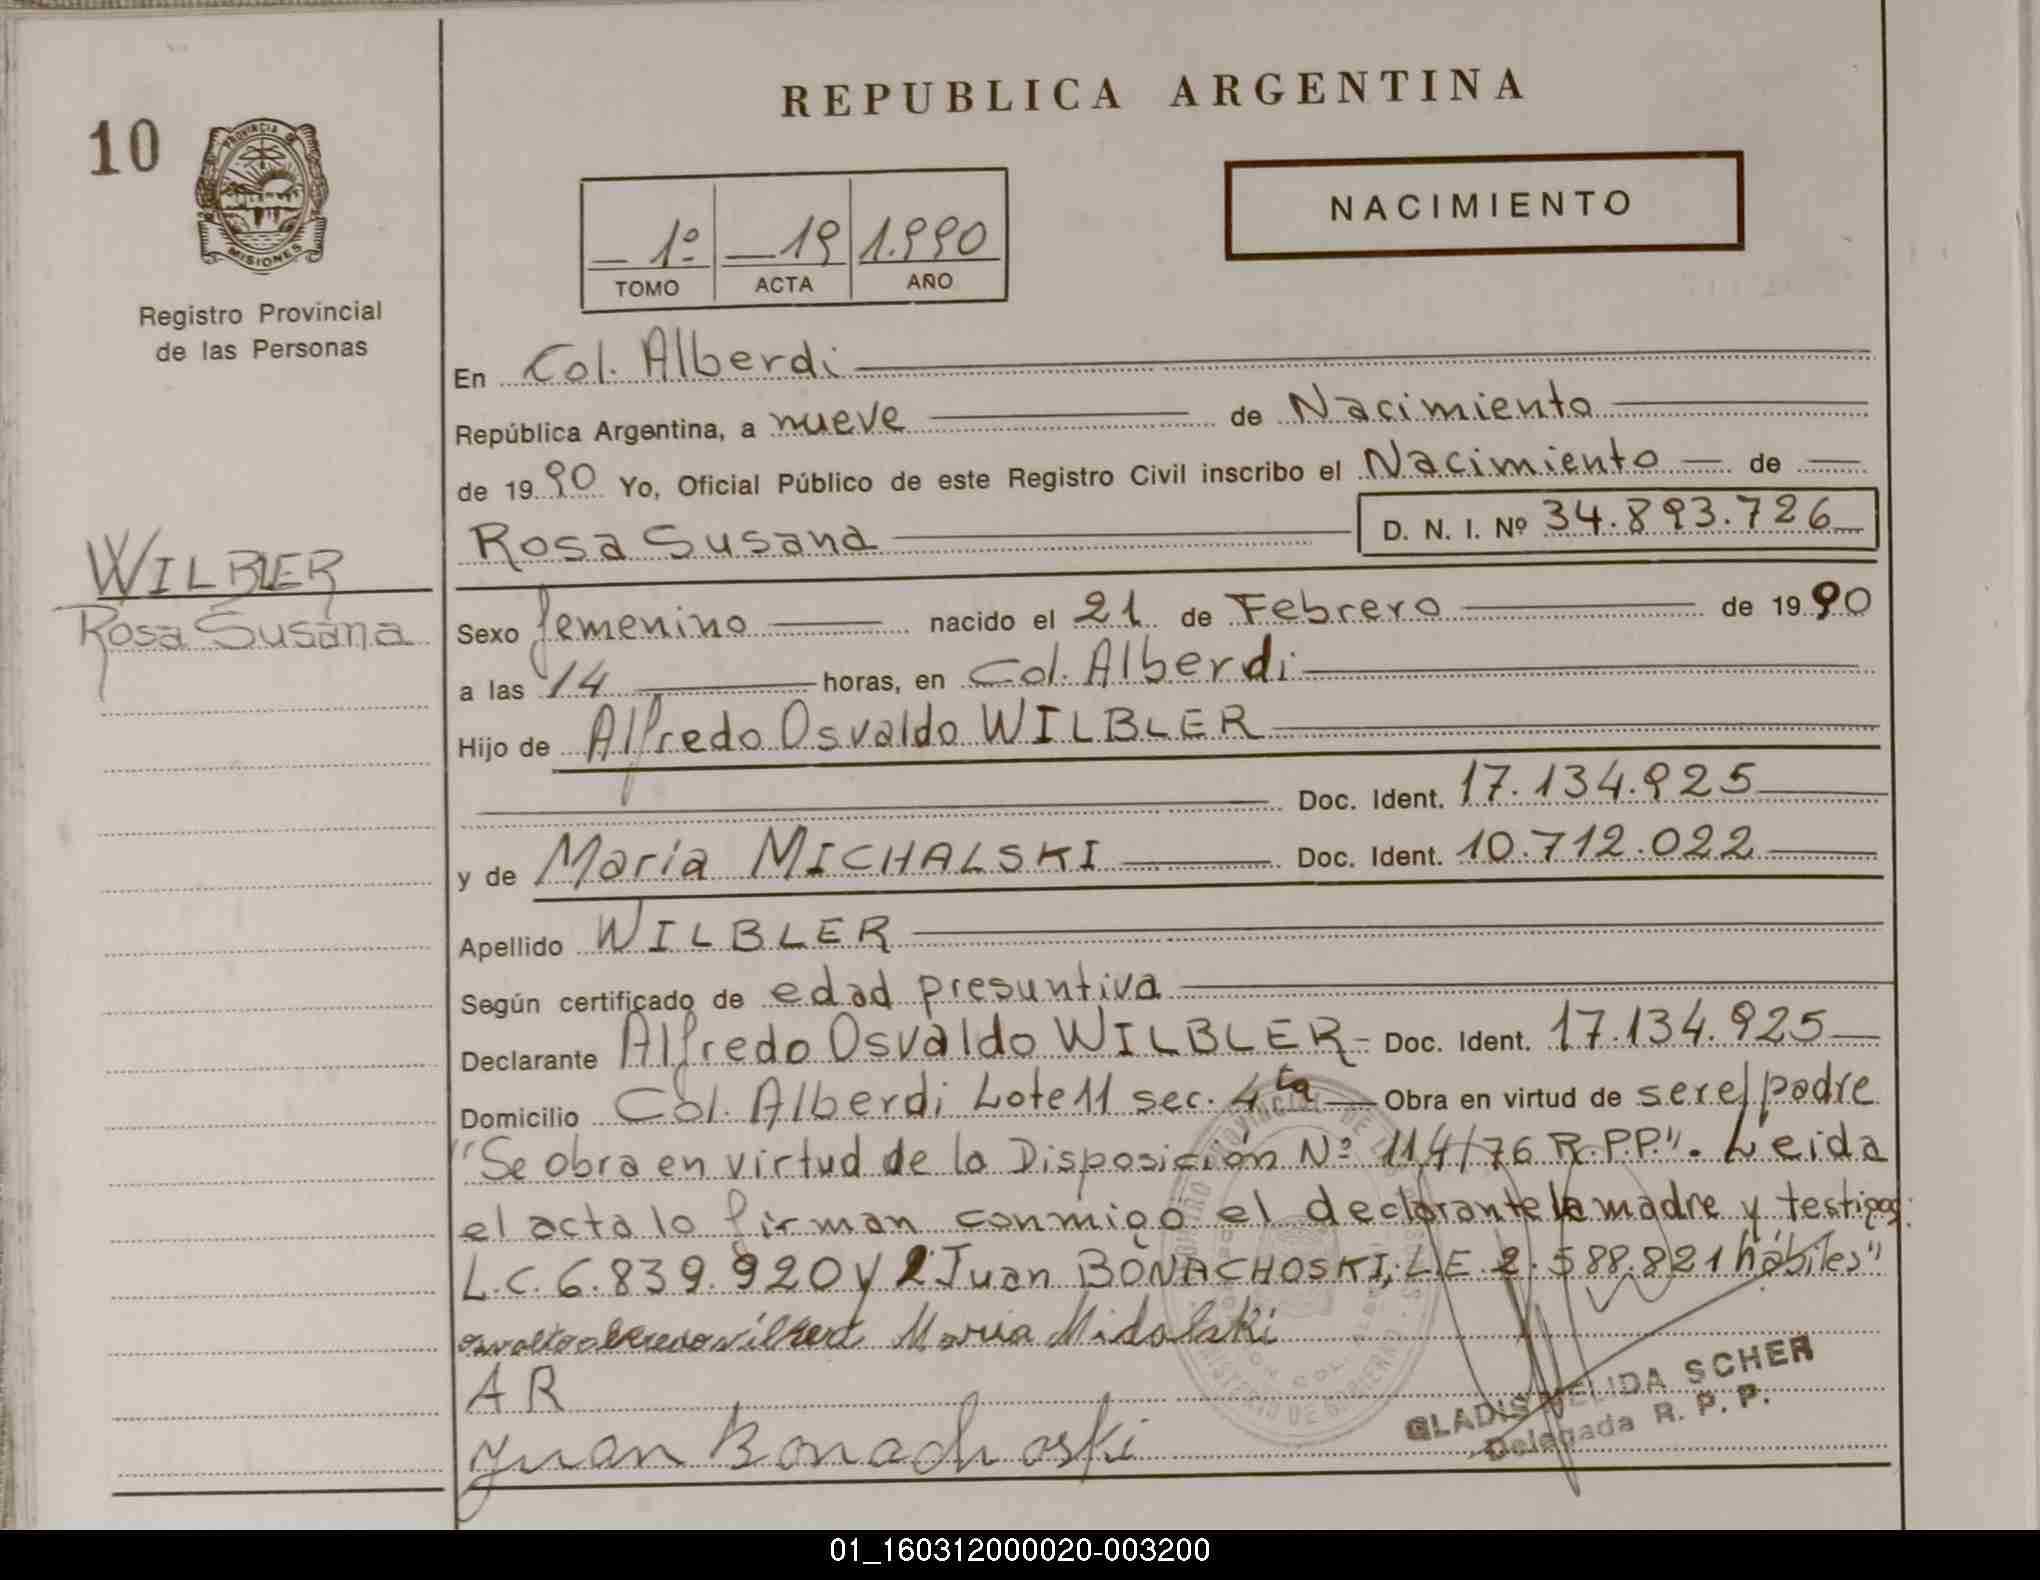 REPUBLICA ARGENTINA
10
PROVINCIA DE
MISIONES
Registro Provincial
de las Personas
NACIMIENTO
1º 19 1.990
TOMO ACTA AÑO
En Col. Alberdi
República Argentina, a nueve de Nacimiento
de 1990 Yo, Oficial Público de este Registro Civil inscribo el Nacimiento de
Rosa Susana D. N. I. Nº 34.893.726
WILBLER
Rosa Susana
Sexo femenino nacido el 21 de Febrero de 1990
a las 14 horas, en Col. Alberdi
Hijo de Alfredo Osvaldo WILBLER
Doc. Ident. 17.134.925
y de María MICHALSKI Doc. Ident. 10.712.022
Apellido WILBLER
Según certificado de edad presuntiva
Declarante Alfredo Osvaldo WILBLER Doc. Ident. 17.134.925
Domicilio Col. Alberdi Lote 11 sec. 4ta Obra en virtud de ser el padre
"Se obra en virtud de la Disposición Nº 114/76 R.P.P.". Leida
el acta lo firman conmigo el declarante la madre y testigos:
L.C. 6.839.920 y 2 Juan BONACHOSKI, L.E. 2.588.821 hábiles"
Maria Midalski
A R
Juan Bonachoski
GLADIS NELIDA SCHER
Delegada R. P. P.
01_160312000020-003200